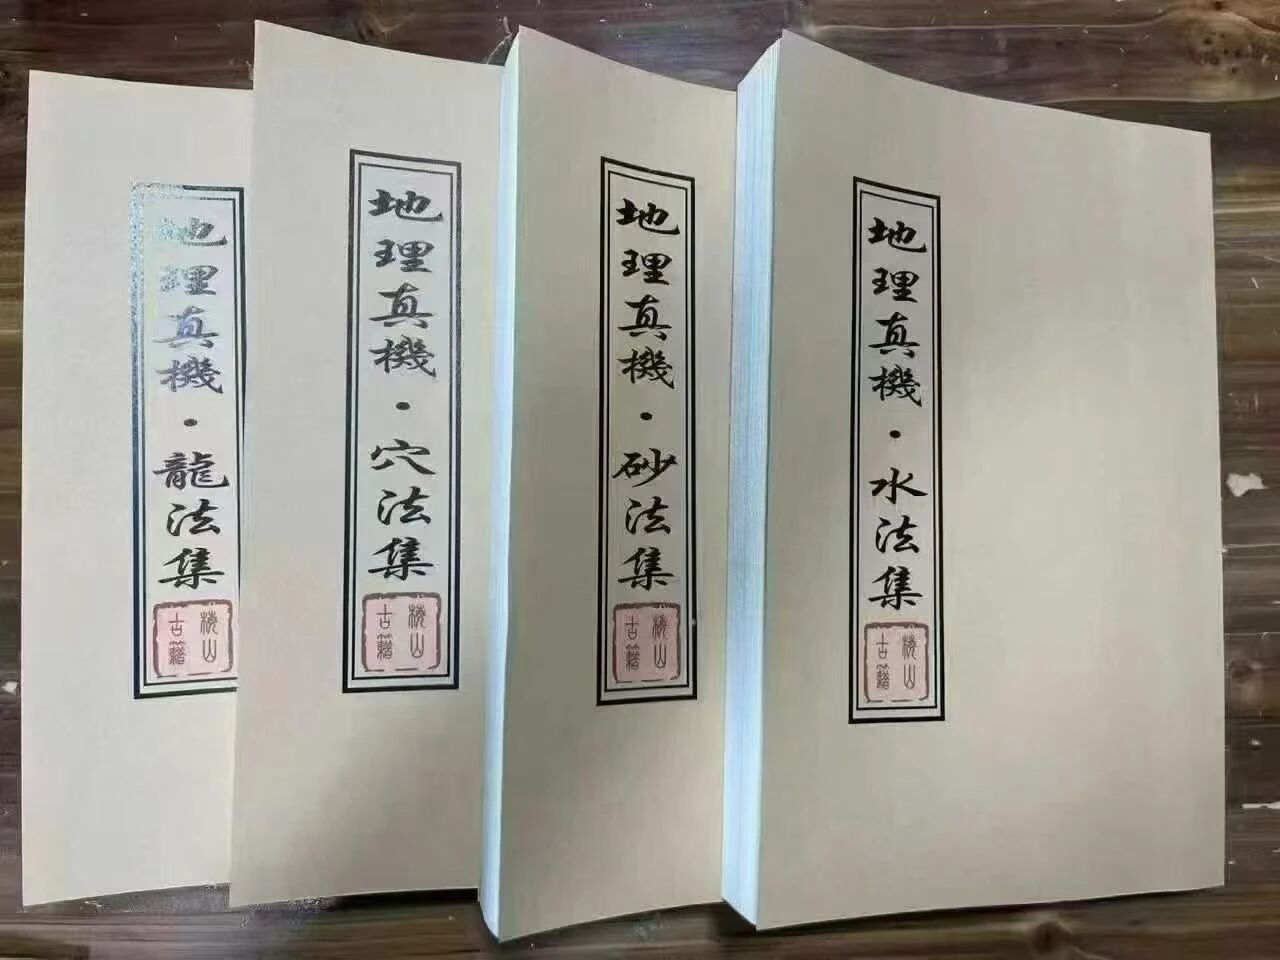 地理真機·龍法集
古籍
地理真機·穴法集
古籍
地理真機·砂法集
古籍
地理真機·水法集
古籍